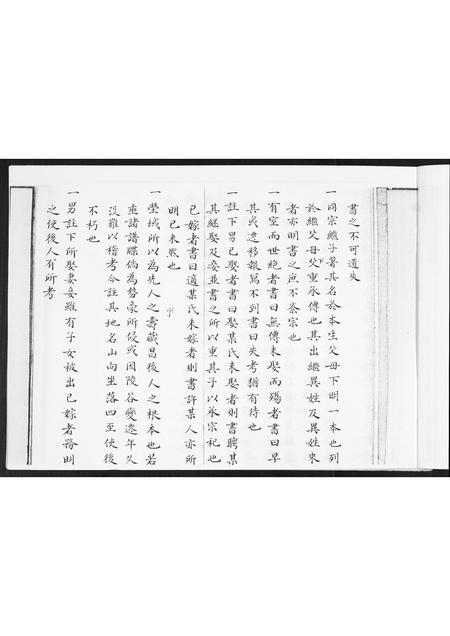 書之不可遺失
一同宗繼子著其名於本生父母下明一本也列
於繼父母父重承傳也其出繼異姓及異姓來
者亦明書之庶不紊宗也
一有室而世絕者書曰無傳未娶而殤者書曰早
其或遷移報寫不到書曰失考猶有待也
一註下男已娶者書曰娶某氏未娶者則書聘某
其繼娶及妾並書之所以重其子以承宗祀也
已嫁者書曰適某氏未嫁者則書許某人亦所
明已未然也
一塋域所以為先人之壽藏昌後人之根本也若
亟諸譜牒倘為勢豪所侵或因陵谷變遷年久
沒難以稽考今註其地名山向坐落四至使後
不朽也
一男註下所娶妻妾雖有子女被出已嫁者務明
之使後人有所考